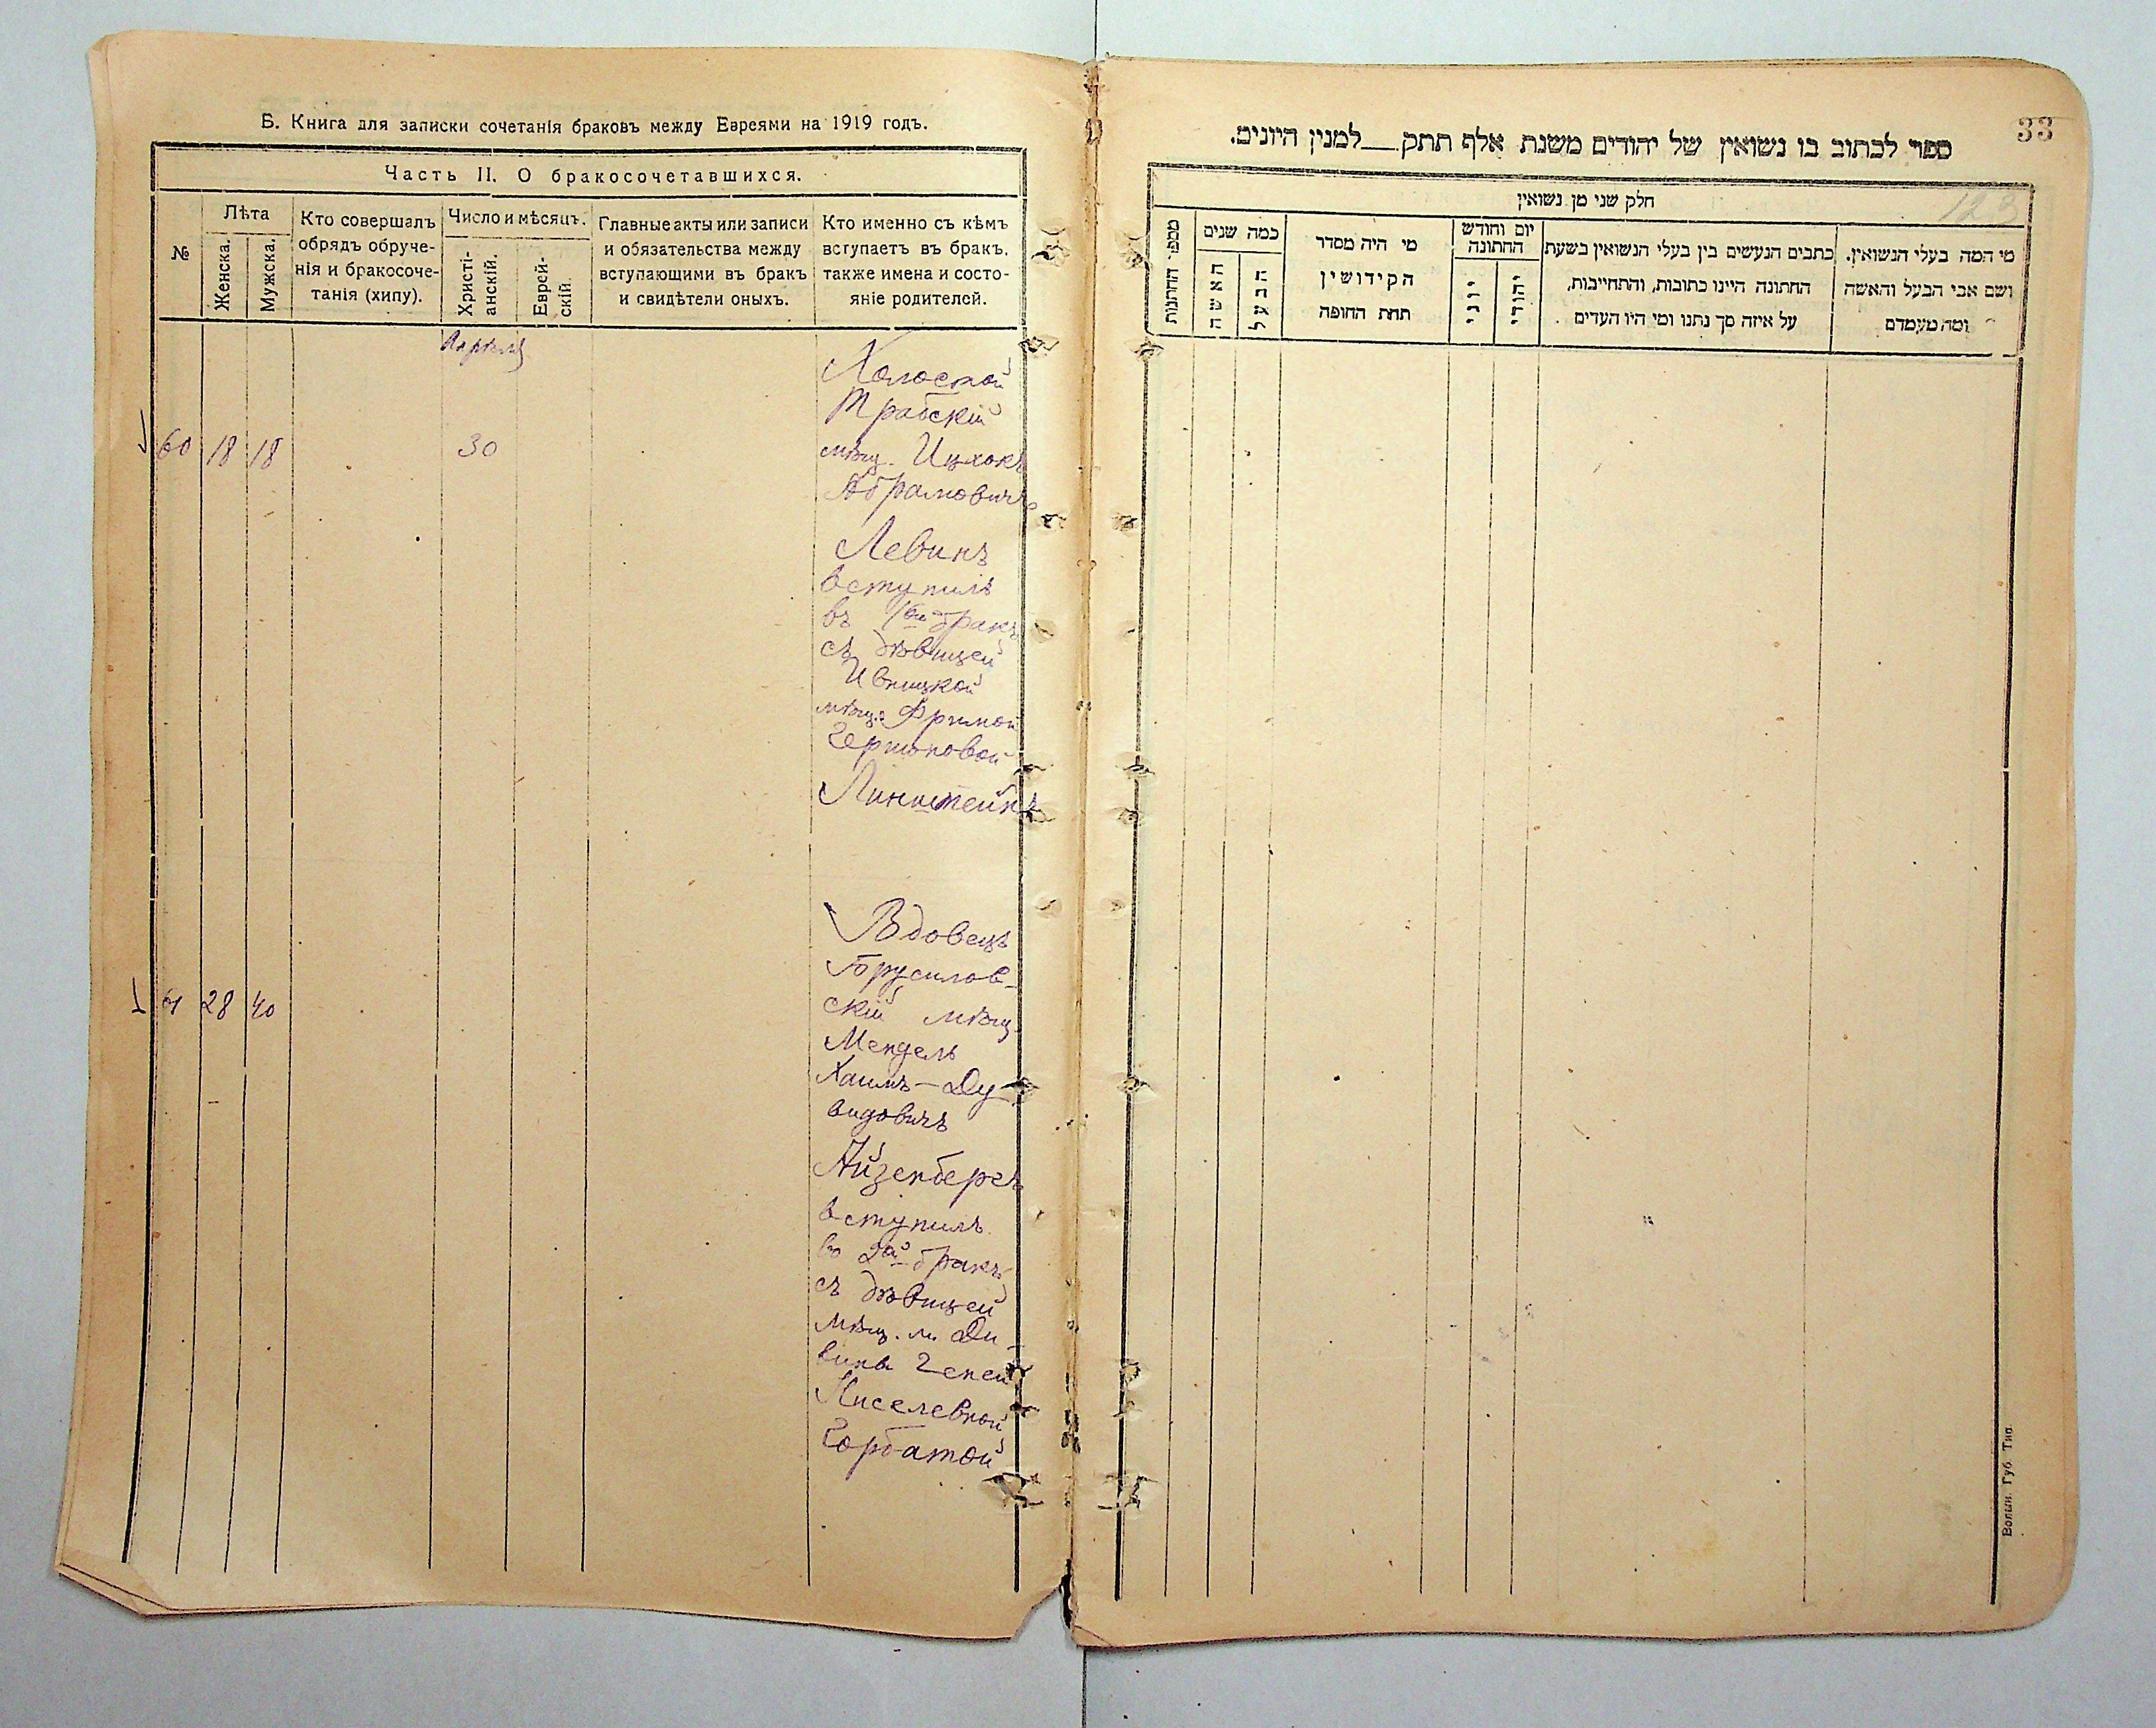 Б. Книга для записки сочетанія браковъ между Евреями на 1919 годъ.
Часть II. О бракосочетавшихся.
№
Лѣта
Женска.
Мужска.
Кто совершалъ
обрядъ обруче-
нія и бракосоче-
танія (хипу).
Число и мѣсяцъ.
Христі-
анскій.
Еврей-
скій.
Главные акты или записи
и обязательства между
вступающими въ бракъ
и свидѣтели оныхъ.
Кто именно съ кѣмъ
вступаетъ въ бракъ,
также имена и состо-
яніе родителей.
Апрѣля
Холостой
Трабскій
60 18 18 30 мѣщ. Ицхокъ
Абрамовичъ
Левинъ
вступилъ
въ 1ый бракъ
съ дѣвицей
Ивницкой
мѣщ. Фримой
Гершоновой
Линштейнъ
Вдовецъ
Брусилов-
61 28 40 скій мѣщ.
Мендель
Хаимъ-Ду-
видовичъ
Айзенбергъ
вступилъ
во 2ой бракъ
съ дѣвицей
мѣщ. м. Ди-
вина Геней
Киселевной
Горбатой
33
ספר לכתוב בו נשואין של יהודים משנת אלף תתק__למנין היונים.
123
חלק שני מן נשואין
מספר החתונות
כמה שנים
האשה
הבעל
מי היה מסדר
הקידושין
תחת החופה
יום וחודש
החתונה
יוני
יהודי
כתבים הנעשים בין בעלי הנשואין בשעת
החתונה היינו כתובות, והתחייבות,
על איזה סך נתנו ומי היו העדים
מי המה בעלי הנשואין.
ושם אבי הבעל והאשה
ומה מעמדם
Волын. Губ. Тип.